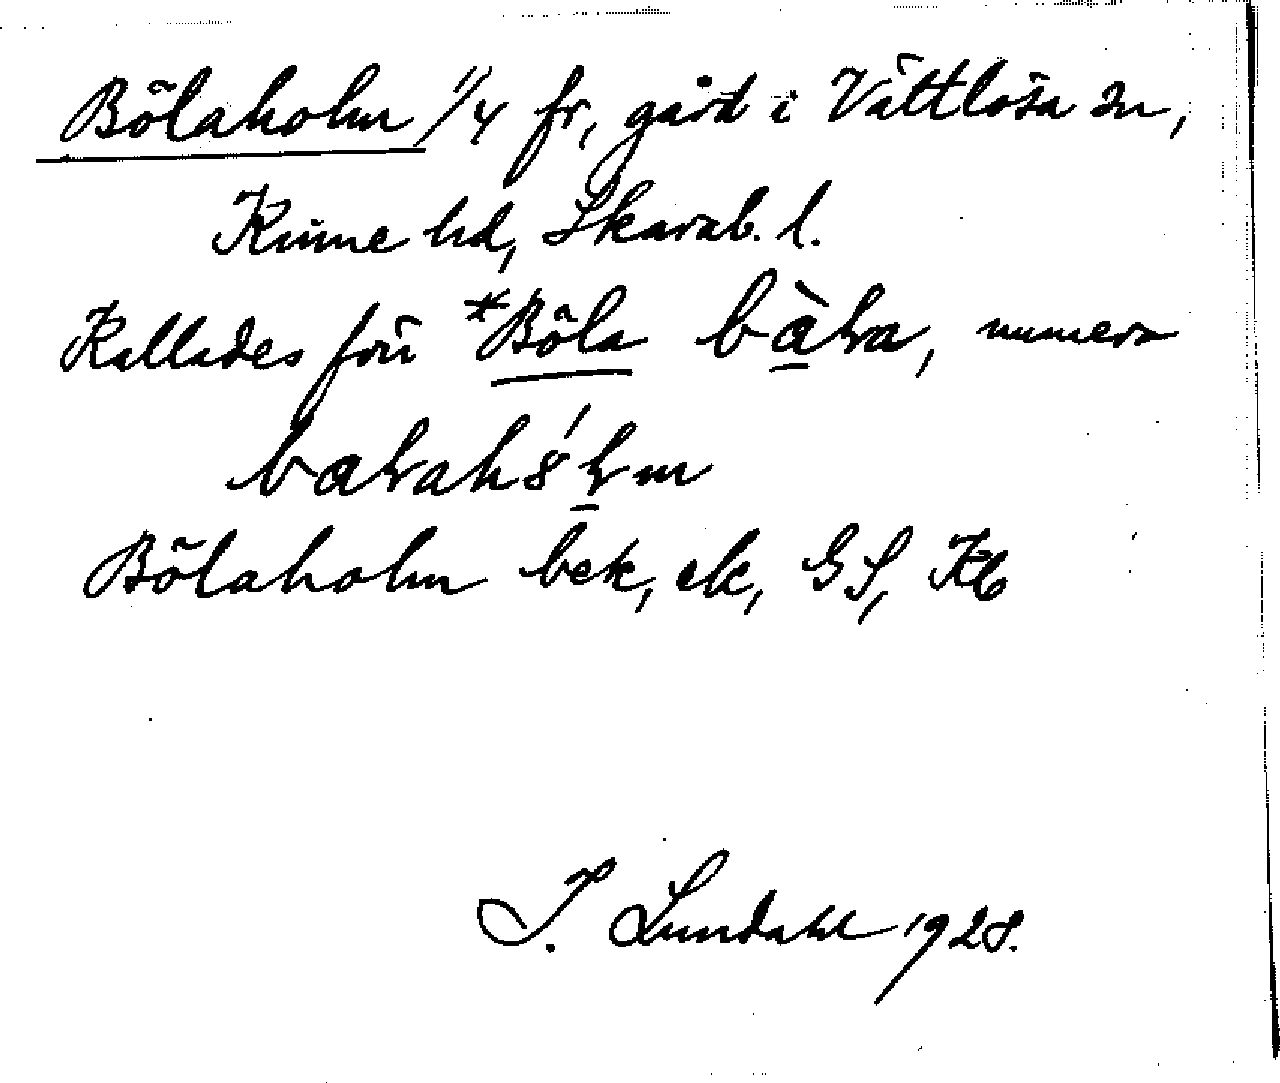 Bölaholm 1/4 fr, gård i Vättlösa sn,
Kinne hd, Skarab. l.
Kallades förr *Böla bàla, numera
balahólm
Bölaholm bek, ek, GS, Kb
I. Lundahl 1928.